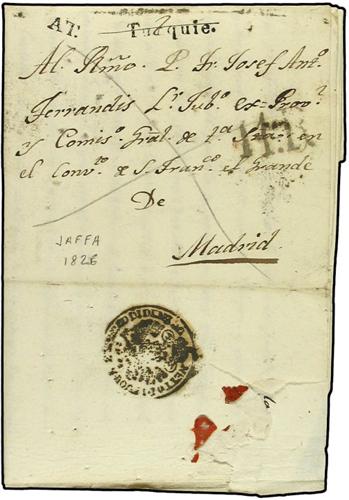 A.T. Turquie.
Al Rmo. P. Fr. Josef Anto.
Ferrandis Lr. Jubo. ex=Provl.
y Comiso. Gral. de
en
el Convto. de S. Franco. el Grande
De
Madrid.
JAFFA
1826